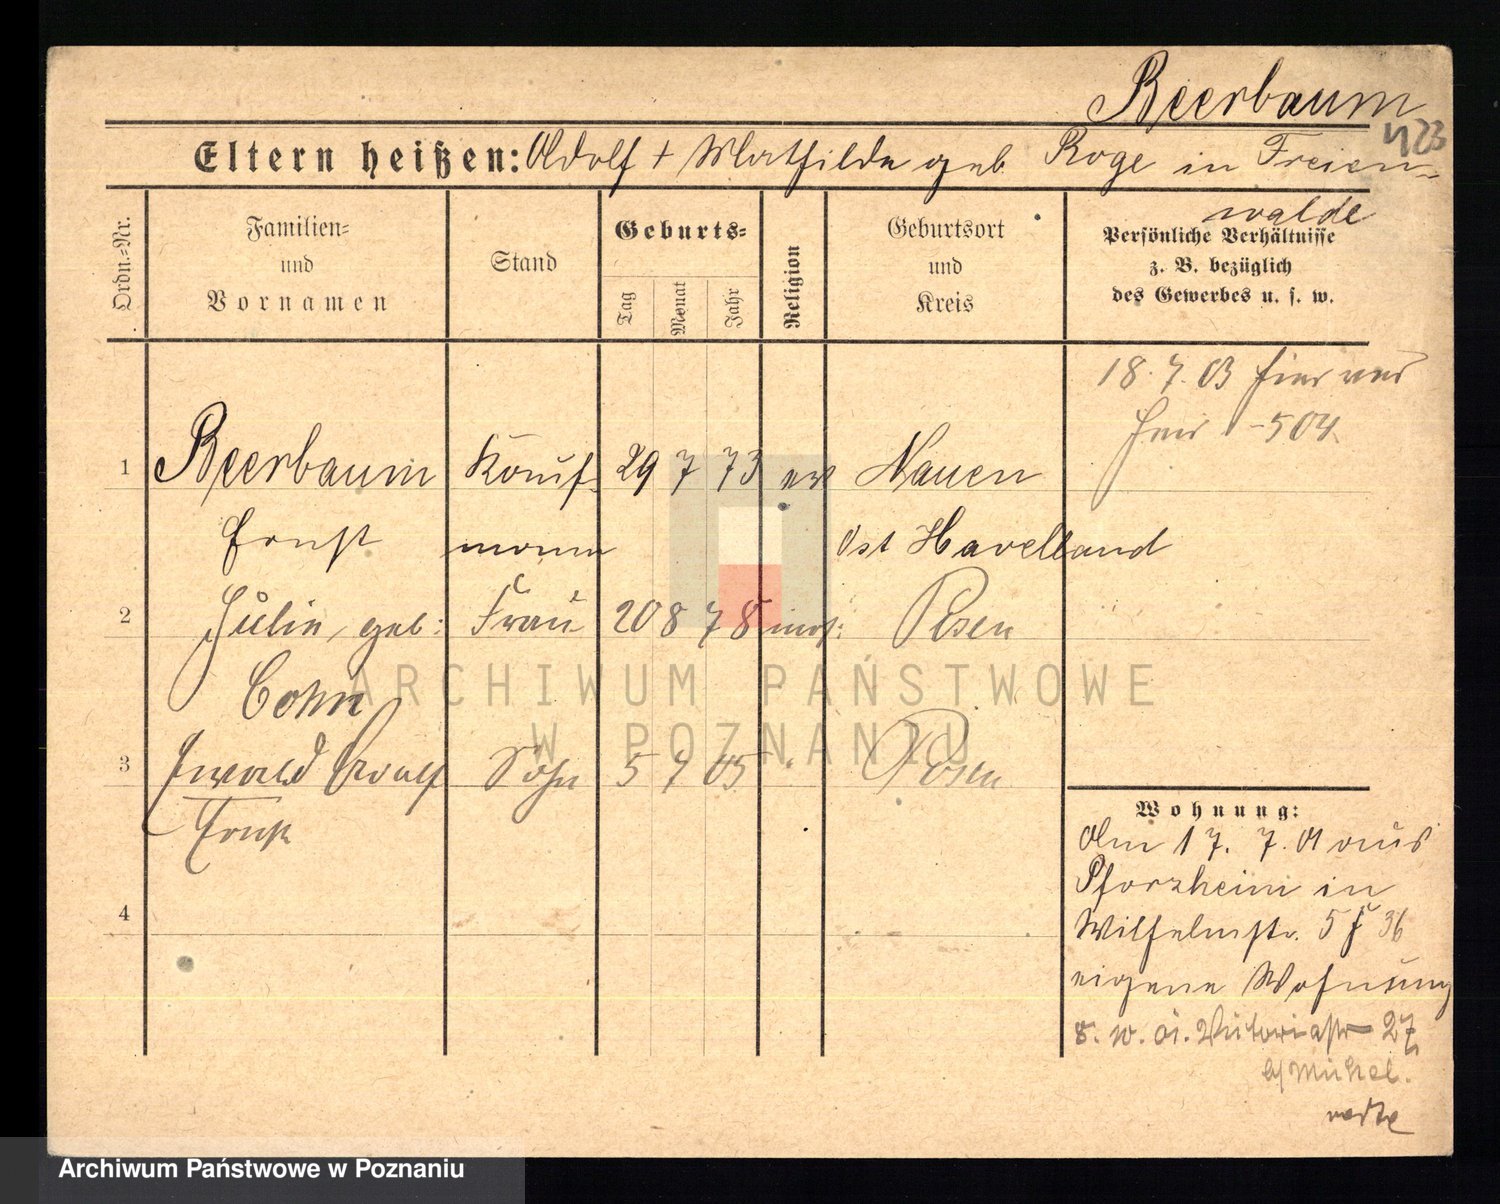 Beerbaum
423
Eltern heißen: Adolf + Mathilde geb. Roge in Freien-
walde
Ordn.-Nr.
Familien-
und
Vornamen
Stand
Geburts-
Tag
Monat
Jahr
Religion
Geburtsort
und
Kreis
Persönliche Verhältnisse
z. B. bezüglich
des Gewerbes u. s. w.
18. 7. 03 hier
504
1 Beerbaum Kauf- 29 7 73 ev Nauen
Ernst mann Ost Havelland
2 Julie, geb: Frau 20 8 78 mos: Posen
Cohn
3 Ewald Adolf Sohn 5 7 05 " Posen
Ernst
4
Wohnung:
Am 17. 7. 01 aus
Pforzheim in
Wilhelmstr. 5 36
eigene Wohnung
8. 10. 01. Victoriastr 27
ARCHIWUM PAŃSTWOWE
W POZNANIU
Archiwum Państwowe w Poznaniu